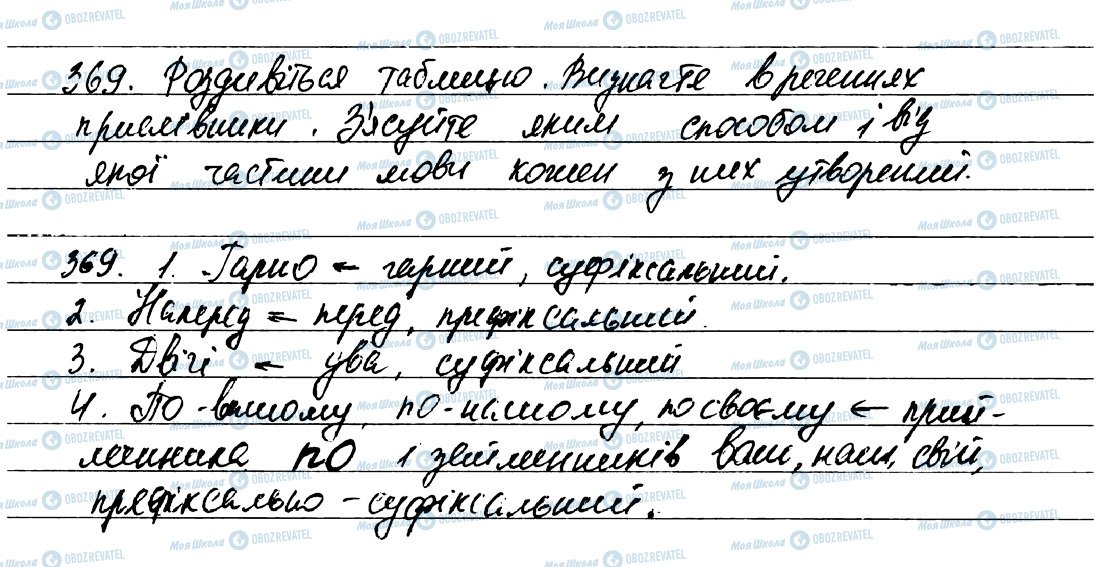 369. Роздивіться таблицю. Визначте в реченнях
прислівники. З'ясуйте яким способом і від
якої частини мови кожен з них утворений.
369. 1. Гарно ← гарний, суфіксальний.
2. Наперед ← перед, префіксальний.
3. Двічі ← два, суфіксальний
4. По-вашому, по-нашому, по своєму ← прий-
менника по і займенників ваш, наш, свій,
префіксально - суфіксальний.